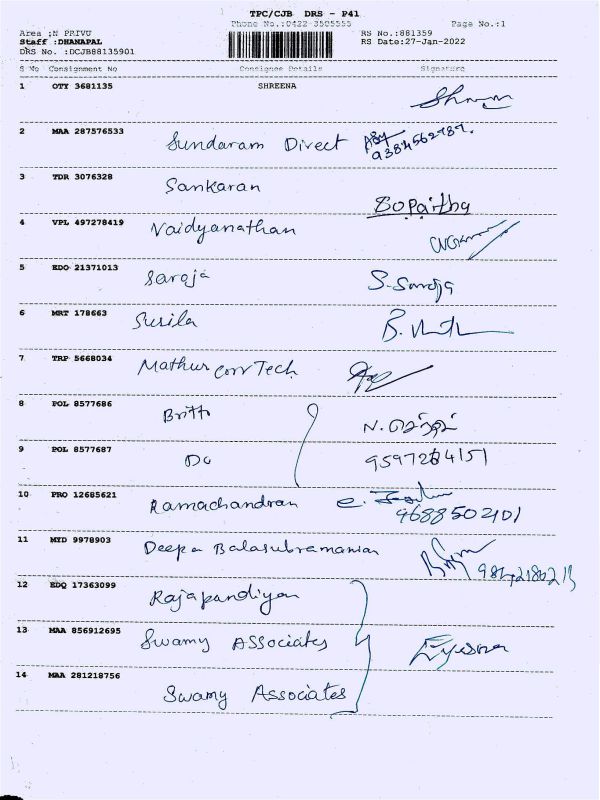 TPC/CJB DRS - P41
Phone No.:0422 3505555
Page No.:1
Area :N PRIVU
RS No.:881359
Staff :DHANAPAL
RS Date:27-Jan-2022
DRS No. :DCJB88135901
S No Consignment No Consignee Details Signature
1 OTY 3681135 SHREENA
2 MAA 287576533 Sundaram Direct
3 TDR 3076328 Sankaran
4 VPL 497278419 Vaidyanathan
5 EDO 21371013 Saroja S. Saroja
6 MRT 178663 Susila
7 TRP 5668034 Mathur Conv Tech
8 POL 8577686 Britto
9 POL 8577687 Do
10 PRO 12685621 Ramachandran 9688502101
11 MYD 9978903 Deepa Balasubramanian
12 EDQ 17363099 Rajapandiyan
13 MAA 856912695 Swamy Associates
14 MAA 281218756 Swamy Associates